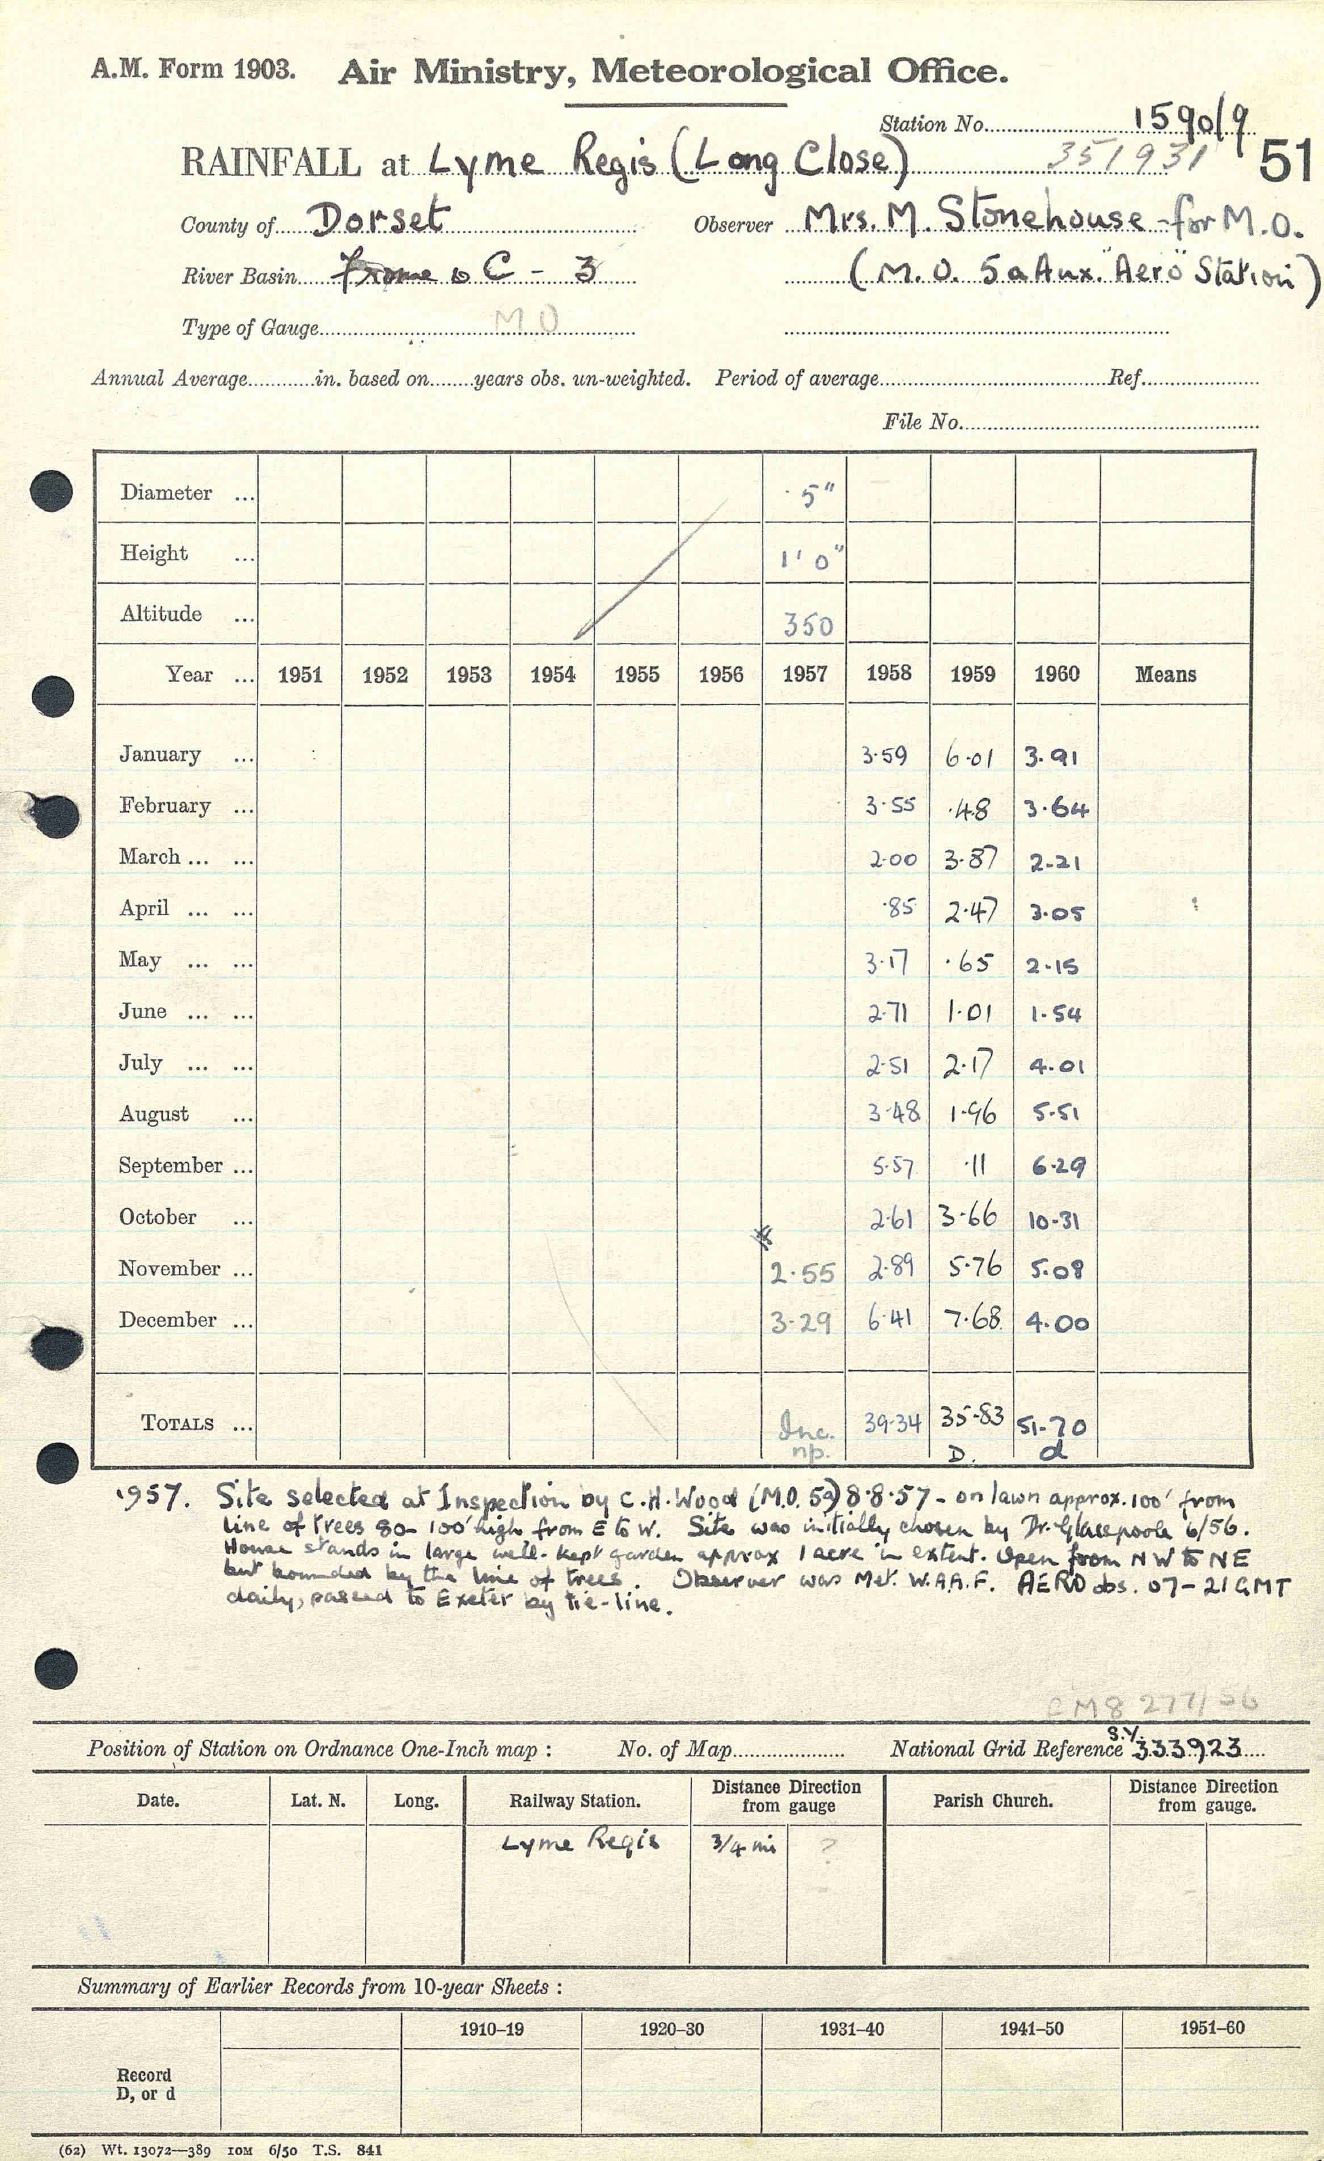 A.M. Form 1903. Air Ministry, Meteorological Office.
Station No. 1590/9
RAINFALL at Lyme Regis (Long Close) 351931 51
County of Dorset Observer Mrs. M. Stonehouse - for M.O.
River Basin Frome C - 3 (M.O. 5a Aux. "Aero" Station)
Type of Gauge M O
Annual Average in. based on years obs. un-weighted. Period of average Ref.
File No.
Diameter ... 5"
Height ... 1' 0"
Altitude ... 350
Year ... 1951 1952 1953 1954 1955 1956 1957 1958 1959 1960 Means
January ... 3.59 6.01 3.91
February ... 3.55 .48 3.64
March ... ... 2.00 3.87 2.21
April ... ... .85 2.47 3.05
May ... ... 3.17 .65 2.15
June ... ... 2.71 1.01 1.54
July ... ... 2.51 2.17 4.01
August ... 3.48 1.96 5.51
September ... 5.57 .11 6.29
October ... 2.61 3.66 10.31
November ... 2.55 2.89 5.76 5.08
December ... 3.29 6.41 7.68 4.00
TOTALS ... Inc. 39.34 35.83 51.70
np. D. d
1957. Site selected at Inspection by C.H. Wood (M.O. 5a) 8.8.57 - on lawn approx. 100' from
line of trees 80-100' high from E to W. Site was initially chosen by Dr. Glasspoole 6/56.
House stands in large well-kept garden approx 1 acre in extent. Open from NW to NE
but bounded by the line of trees. Observer was Met. W.A.A.F. AERO obs. 07-21 GMT
daily, passed to Exeter by tie-line.
277/56
Position of Station on Ordnance One-Inch map : No. of Map National Grid Reference S.Y. 333923
Date. Lat. N. Long. Railway Station. Distance from gauge Direction Parish Church. Distance from gauge. Direction
Lyme Regis 3/4 mi ?
Summary of Earlier Records from 10-year Sheets :
1910–19 1920–30 1931–40 1941–50 1951–60
Record
D, or d
(62) Wt. 13072—389 10M 6/50 T.S. 841